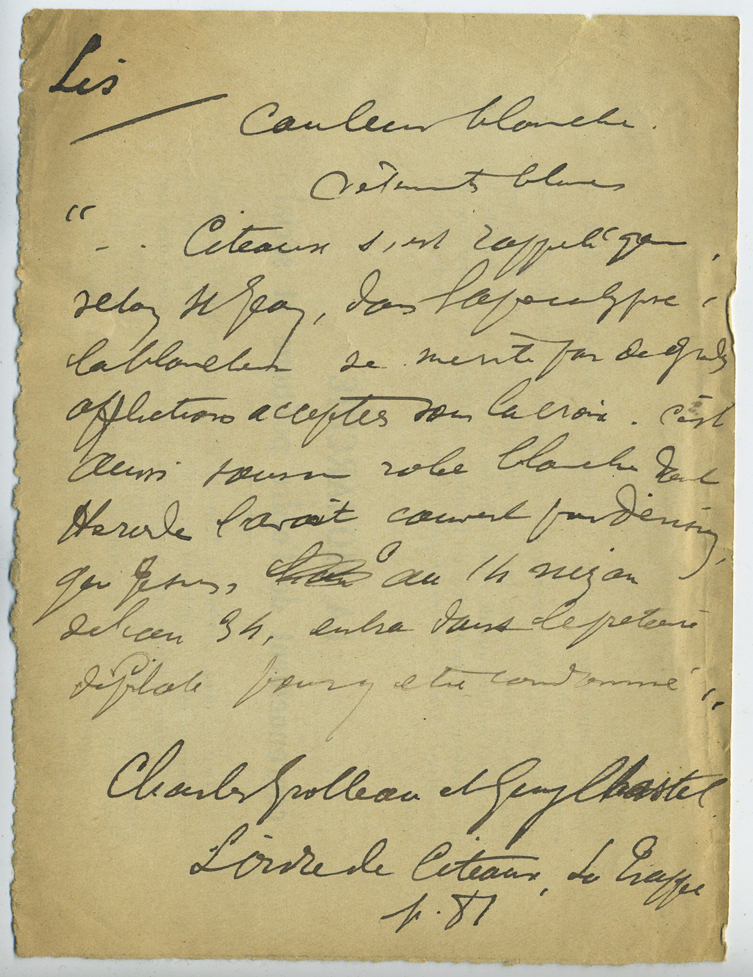 Lis
Couleur blanche.
Vêtements blancs
“ - . Citeaux s'est rappelé que,
selon St Jean, dans l'apocalypse,
la blancheur se mérite par de grandes
afflictions acceptées sous la croix. C'est
aussi sous une robe blanche dont
Herode l'avait couvert par dérision,
que Jesus, au 14 nizan
de l'an 34, entra dans le prétoire
de Pilate pour y etre condamné ”
Charles Grolleau et Guy Chastel
L'ordre de Citeaux, La Trappe
p. 81